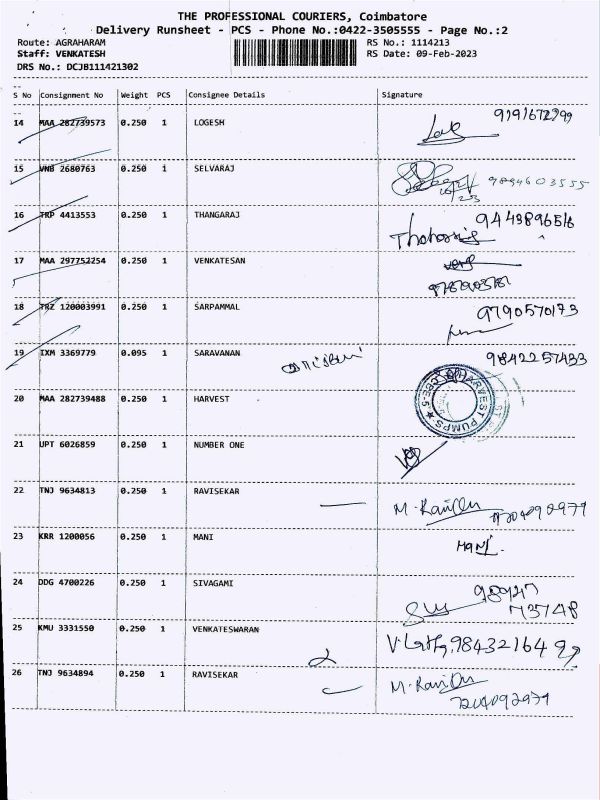 THE PROFESSIONAL COURIERS, Coimbatore
Delivery Runsheet - PCS - Phone No.:0422-3505555 - Page No.:2
Route: AGRAHARAM RS No.: 1114213
Staff: VENKATESH RS Date: 09-Feb-2023
DRS No.: DCJB111421302
S No Consignment No Weight PCS Consignee Details Signature
14 MAA 282739573 0.250 1 LOGESH 9191672299
15 VNB 2680763 0.250 1 SELVARAJ 9894603555
16 TRP 4413553 0.250 1 THANGARAJ 9443896516
17 MAA 297752254 0.250 1 VENKATESAN
18 TRZ 120003991 0.250 1 SARPAMMAL 9790570173
19 IXM 3369779 0.095 1 SARAVANAN 9842257433
20 MAA 282739488 0.250 1 HARVEST HARVEST PUMPS CBE-5
21 UPT 6026859 0.250 1 NUMBER ONE
22 TNJ 9634813 0.250 1 RAVISEKAR
23 KRR 1200056 0.250 1 MANI Mani.
24 DDG 4700226 0.250 1 SIVAGAMI
73748
25 KMU 3331550 0.250 1 VENKATESWARAN 9843216499
26 TNJ 9634894 0.250 1 RAVISEKAR
7204092979